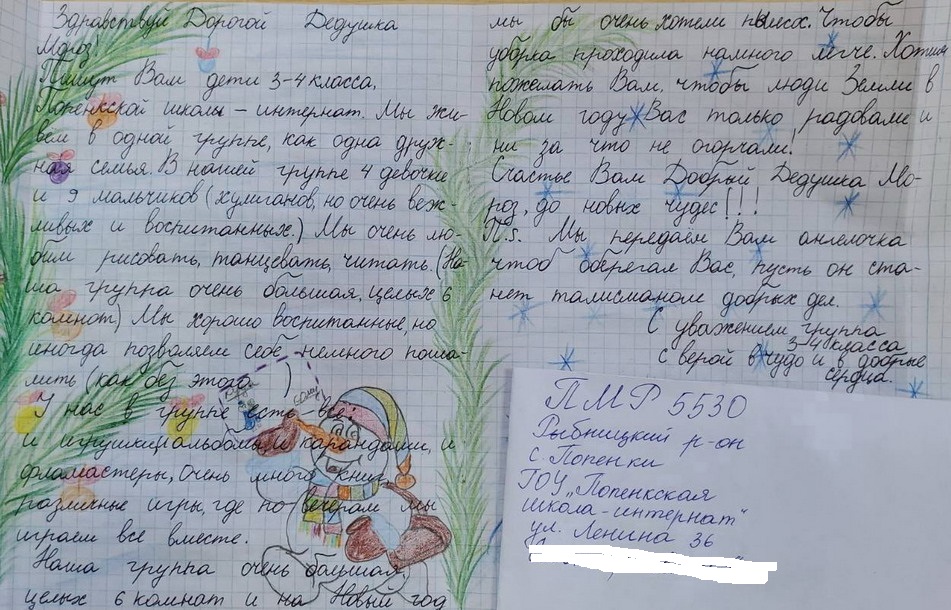 Здравствуй Дорогой Дедушка
Мороз!
Пишут Вам дети 3-4 класса,
Попенкской школы - интернат. Мы жи-
вём в одной группе, как одна друж-
ная семья. В нашей группе 4 девочки
и 9 мальчиков (хулиганов, но очень веж-
ливых и воспитанных.) Мы очень лю-
бим рисовать, танцевать, читать. (На-
ша группа очень большая, целых 6
комнат) Мы хорошо воспитанные, но
иногда позволяем себе немного поша-
лить (как без этого )
У нас в группе есть все:
и игрушки, и альбомы, и карандаши, и
фламастеры, Очень много книг,
различные игры, где по вечерам мы
играем все вместе.
Наша группа очень большая,
целых 6 комнат и на Новый год
мы бы очень хотели пылесос. Чтобы
уборка проходила намного легче. Хотим
пожелать Вам, чтобы люди Земли в
Новом году Вас только радовали и
ни за что не огорчали!
Счастье Вам Добрый Дедушка Мо-
роз, до новых чудес!!!
П.s. Мы передаём Вам ангелочка
чтоб оберегал Вас, пусть он ста-
нет талисманом добрых дел.
С уважением группа
3-4 класса
с верой в чудо и в добрые
сердца.
ПМР 5530
Рыбницкий р-он
с. Попенки
ГОУ „Попенкская
школа-интернат"
ул. Ленина 36